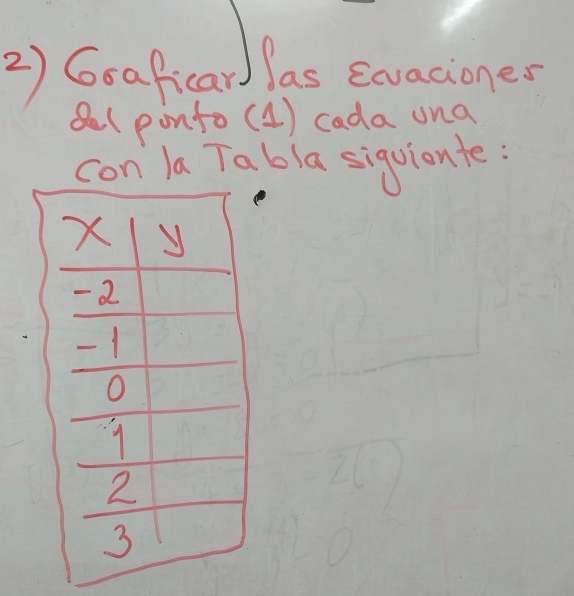 2) Graficar las Ecuaciones
del punto (1) cada una
con la Tabla siguiente:
x y
-2
-1
0
1
2
3